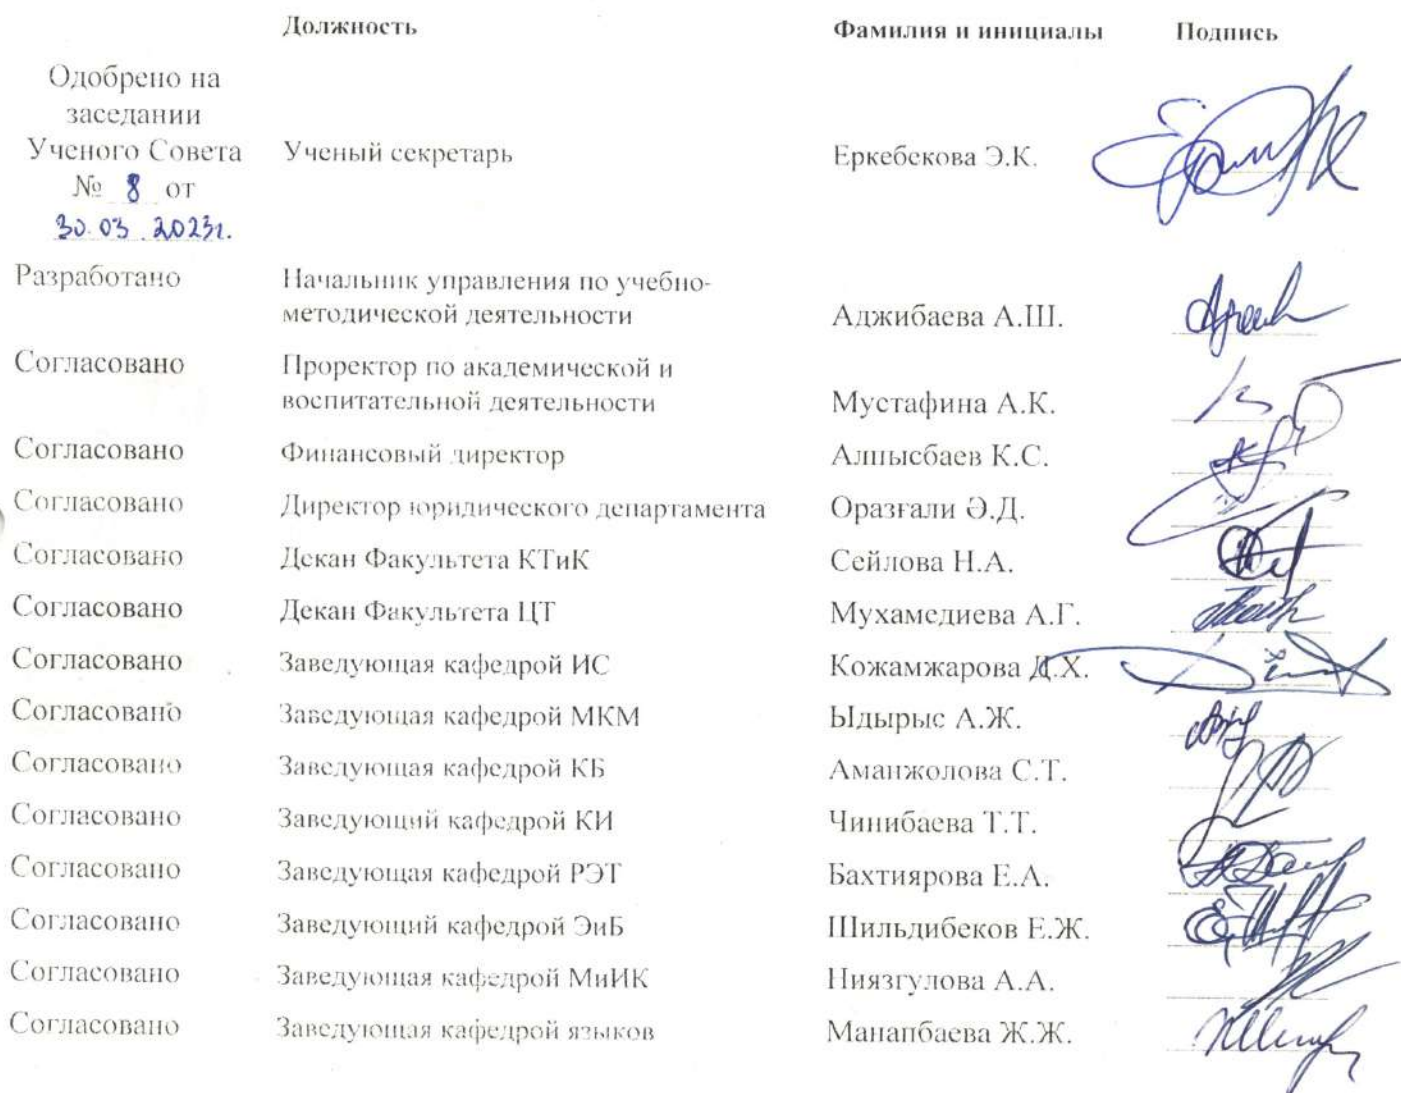 Должность Фамилия и инициалы Подпись
Одобрено на
заседании
Ученого Совета Ученый секретарь Еркебекова Э.К.
№ 8 от
30.03.2023г.
Разработано Начальник управления по учебно-
методической деятельности Аджибаева А.Ш.
Согласовано Проректор по академической и
воспитательной деятельности Мустафина А.К.
Согласовано Финансовый директор Алпысбаев К.С.
Согласовано Директор юридического департамента Оразғали Ә.Д.
Согласовано Декан Факультета КТиК Сейлова Н.А.
Согласовано Декан Факультета ЦТ Мухамедиева А.Г.
Согласовано Заведующая кафедрой ИС Кожамжарова Д.Х.
Согласовано Заведующая кафедрой МКМ Ыдырыс А.Ж.
Согласовано Заведующая кафедрой КБ Аманжолова С.Т.
Согласовано Заведующий кафедрой КИ Чинибаева Т.Т.
Согласовано Заведующая кафедрой РЭТ Бахтиярова Е.А.
Согласовано Заведующий кафедрой ЭиБ Шильдибеков Е.Ж.
Согласовано Заведующая кафедрой МиИК Ниязгулова А.А.
Согласовано Заведующая кафедрой языков Манапбаева Ж.Ж.